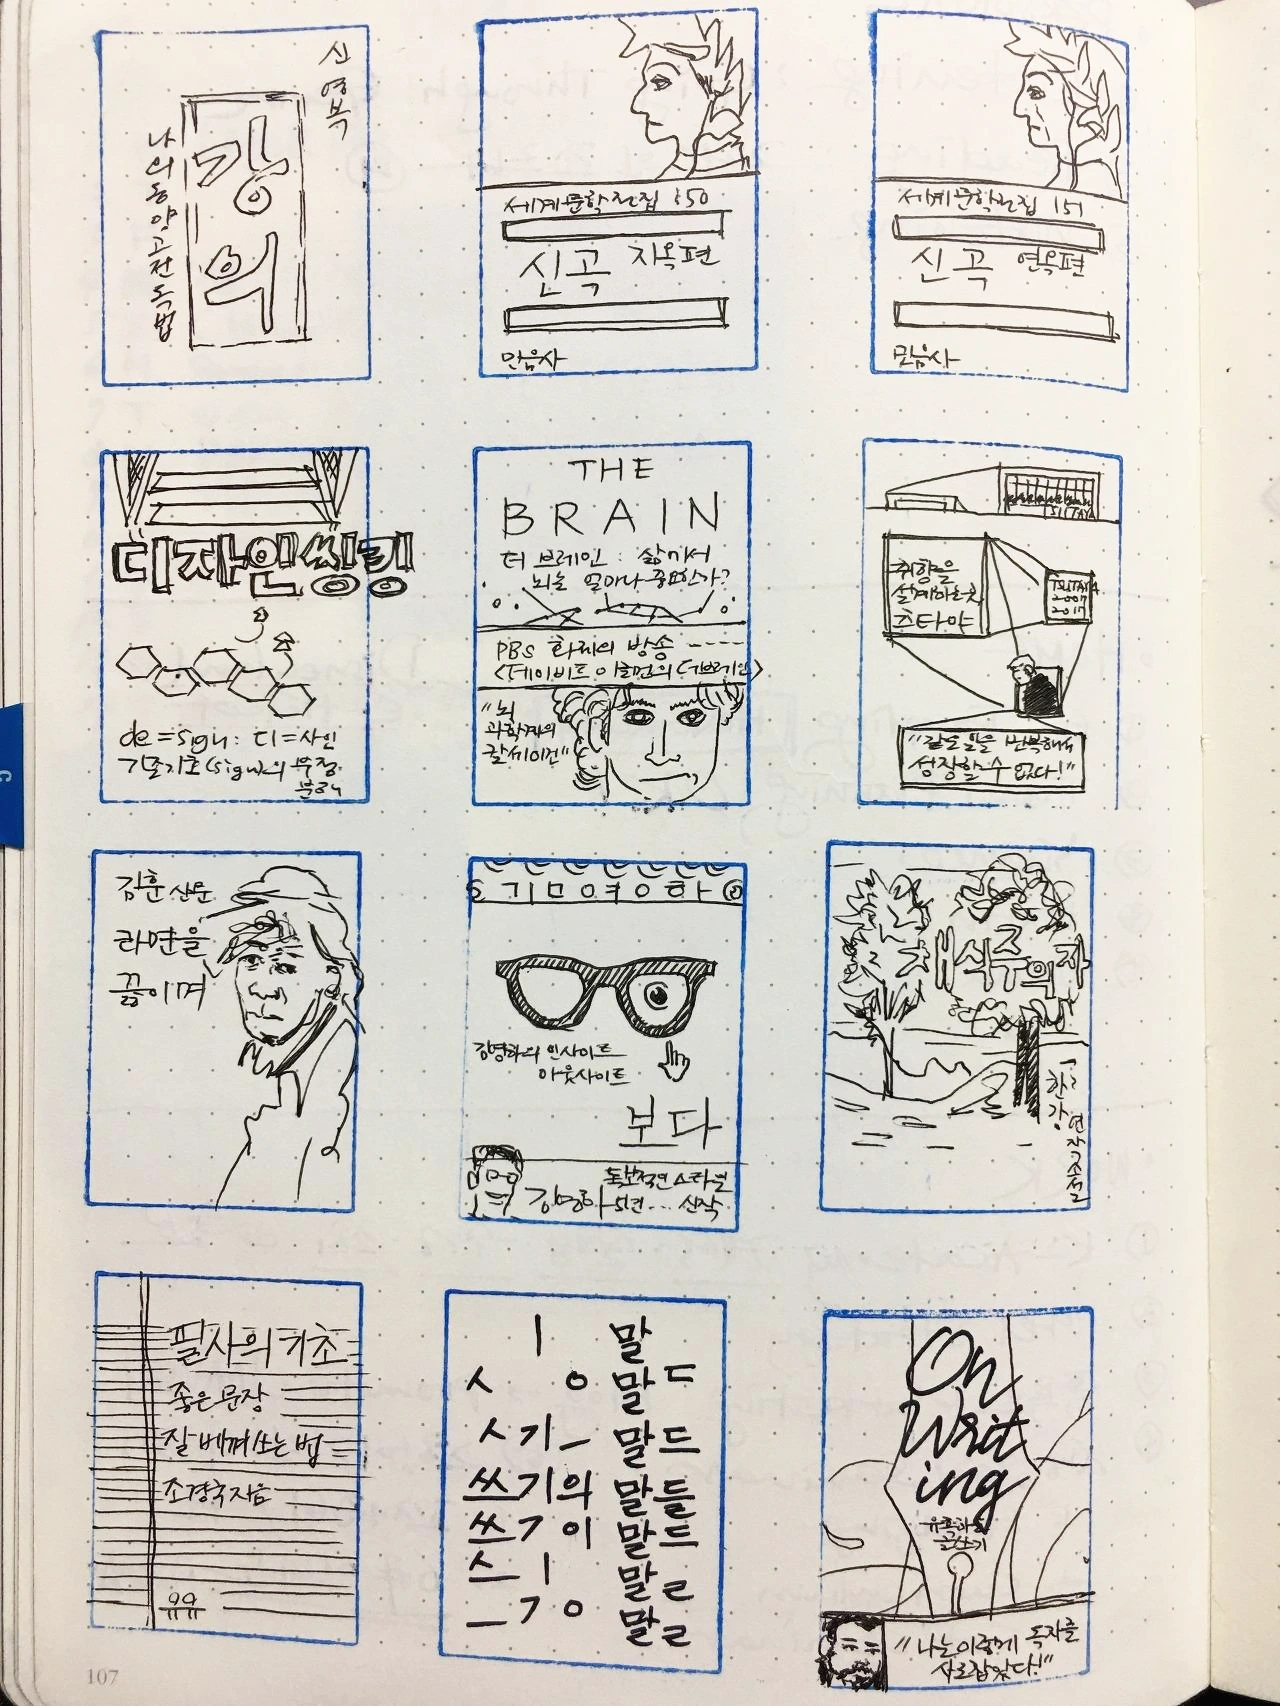 신영복
강의
나의 동양고전 독법
세계문학전집 150
신곡 지옥편
민음사
세계문학전집 151
신곡 연옥편
민음사
디자인씽킹
de=sign: 디=사인
기존기호(sign)의 부정
분리
THE
BRAIN
더 브레인 : 삶에서
뇌는 얼마나 중요한가?
PBS 화제의 방송 -----
<데이비드 이글먼의 더브레인>
"뇌
과학계의
칼세이건"
TSUTAYA
취향을
설계하는곳
츠타야
TSUTAYA
2007
2017
"같은 일을 반복해서
성장할 수 없다!"
김훈 산문
라면을
끓이며
김영하
김영하의 인사이트
아웃사이트
보다
김영하 5년... 신작
채식주의자
한강 연작소설
필사의 기초
좋은 문장
잘 베껴 쓰는 법
조경국 지음
유유
ㅣ 말
ㅅ ㅇ 말ㄷ
ㅅ기ㅡ 말드
쓰기의 말들
쓰기이 말드
스ㅣ 말ㄹ
ㅡㄱㅇ 말ㄹ
On
Writ
ing
유혹하는
글쓰기
"나는 이렇게 독자를
사로잡았다!"
107